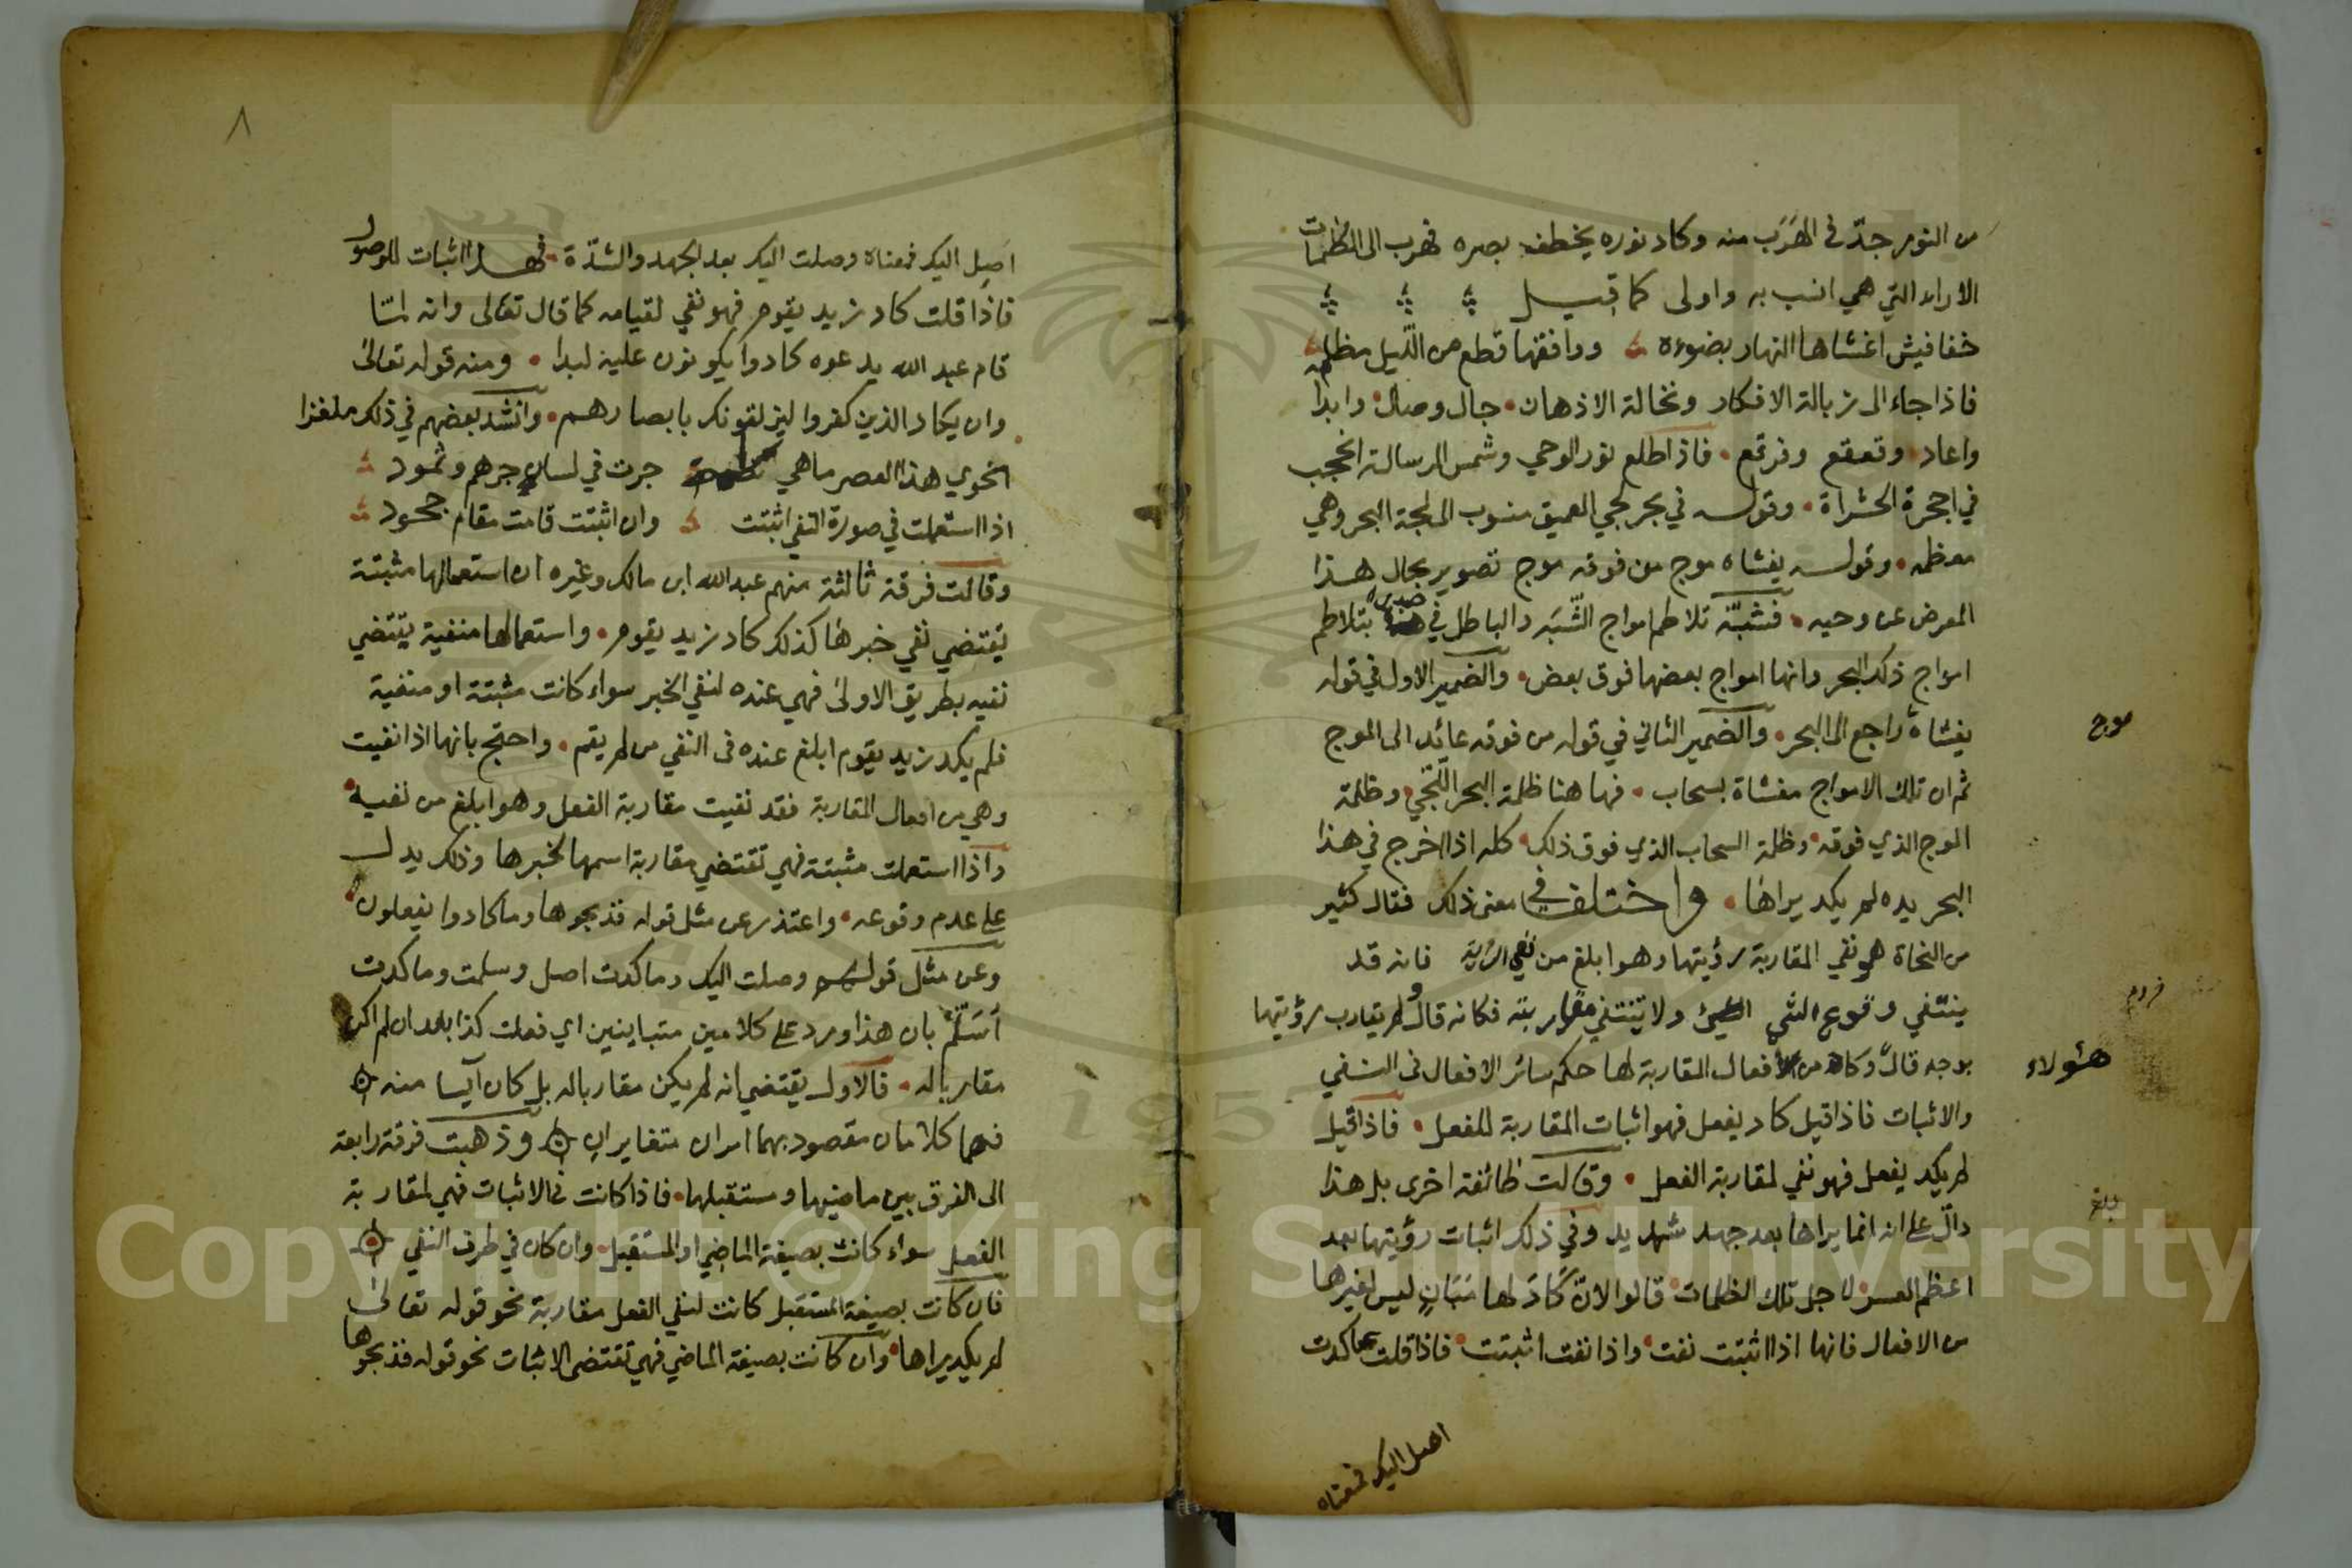 من النور جدّ في الهَرَب منه وكاد نوره يخطف بصره فهرب الى الظلمات
الاراء التي هي انسب به واولى كما قيل
خفافيش اغشاها النهار بضوءه ووافقها قطع من الليل مظلم
فاذا جاء الى زبالة الافكار ونخالة الاذهان جال وصال وابدا
واعاد وقعقع وفرقع فاذا طلع نور الوحي وشمس الرسالة انحجب
في اجحرة الحشراة وقوله في بحر لجي العميق منسوب الى لجة البحر وهي
معظمه وقوله يغشاه موج من فوقه موج تصوير بحال هذا
المعرض عن وحيه فشبّه تلاطم امواج الشُبَه والباطل في صدره بتلاطم
امواج ذلك البحر وانها امواج بعضها فوق بعض والضمير الاول في قوله
يغشاه راجع الى البحر والضمير الثاني في قوله من فوقه عائد الى الموج
موج
ثم ان تلك الامواج مغشاة بسحاب فها هنا ظلمة البحر اللّجي وظلمة
الموج الذي فوقه وظلمة السحاب الذي فوق ذلك كله اذا اخرج في هذا
البحر يده لم يكد يراها واختلف في معنى ذلك فقال كثير
من النحاة هو نفي المقاربة رؤيتها وهو ابلغ من نفي الرؤية فانه قد
ينتفي وقوع الشي ولا تنتفي مقاربته فكانه قال لم يقارب رؤيتها
بوجه قال وكاد من افعال المقاربة لها حكم سائر الافعال في النفي
هئولاء
والاثبات فاذا قيل كاد يفعل فهو اثبات المقاربة للفعل فاذا قيل
لم يكد يفعل فهو نفي لمقاربة الفعل وقالت طائفة اخرى بل هذا
دالّ على انه انما يراها بعد جهد شديد وفي ذلك اثبات رؤيتها بعد
بلغ
اعظم العسر لاجل تلك الظلمات قالوا لانّ كَادَ لها شان ليس لغيرها
من الافعال فانها اذا اثبتت نفت واذا نفت اثبتت فاذا قلت ما كدت
اصل اليك فمعناه
٨
اصِل اليك فمعناه وصلت اليك بعد الجهد والشدّة فهذا اثبات للوصول
فاذا قلت كاد زيد يقوم فهو نفي لقيامه كما قال تعالى وانه لمّا
قام عبد الله يدعوه كادوا يكونون عليه لبدا ومنه قوله تعالى
وان يكاد الذين كفروا ليزلقونك بابصارهم وانشد بعضهم في ذلك ملغزا
انحوي هذا العصر ما هي لفظة جرت في لسان جرهم وثمود
اذا استعملت في صورة النفي اثبتت وان اثبتت قامت مقام جحود
وقالت فرقة ثالثة منهم عبد الله ابن مالك وغيره ان استعمالها مثبتة
يقتضي نفي خبرها كذلك كاد زيد يقوم واستعمالها منفية يقتضي
نفيه بطريق الاولى فهي عنده لنفي الخبر سواء كانت مثبتة او منفية
فلم يكد زيد يقوم ابلغ عنده في النفي من لم يقم واحتج بانها اذا نفيت
وهي من افعال المقاربة فقد نفيت مقاربة الفعل وهو ابلغ من نفيه
واذا استعملت مثبتة فهي تقتضي مقاربة اسمها لخبرها وذلك يدل
على عدم وقوعه واعتذر عن مثل قوله فذبحوها وما كادوا يفعلون
وعن مثل قوله وصلت اليك وما كدت اصل وسلمت وما كدت
أسَلَم بان هذا ورد على كلامين متباينين اي فعلت كذا بعد ان لم اكن
مقاربا له فالاول يقتضي انه لم يكن مقاربا له بل كان آيسا منه
فهما كلامان مقصود بهما امران متغايران وذهبت فرقة رابعة
الى الفرق بين ماضيها ومستقبلها فاذا كانت في الاثبات فهي لمقاربة
الفعل سواء كانت بصيغة الماضي او المستقبل وان كان في طرف النفي
فان كانت بصيغة المستقبل كانت لنفي الفعل مقاربة نحو قوله تعالى
لم يكد يراها وان كانت بصيغة الماضي فهي تقتضي الاثبات نحو قوله فذبحوها
Copyright © King Saud University
1957